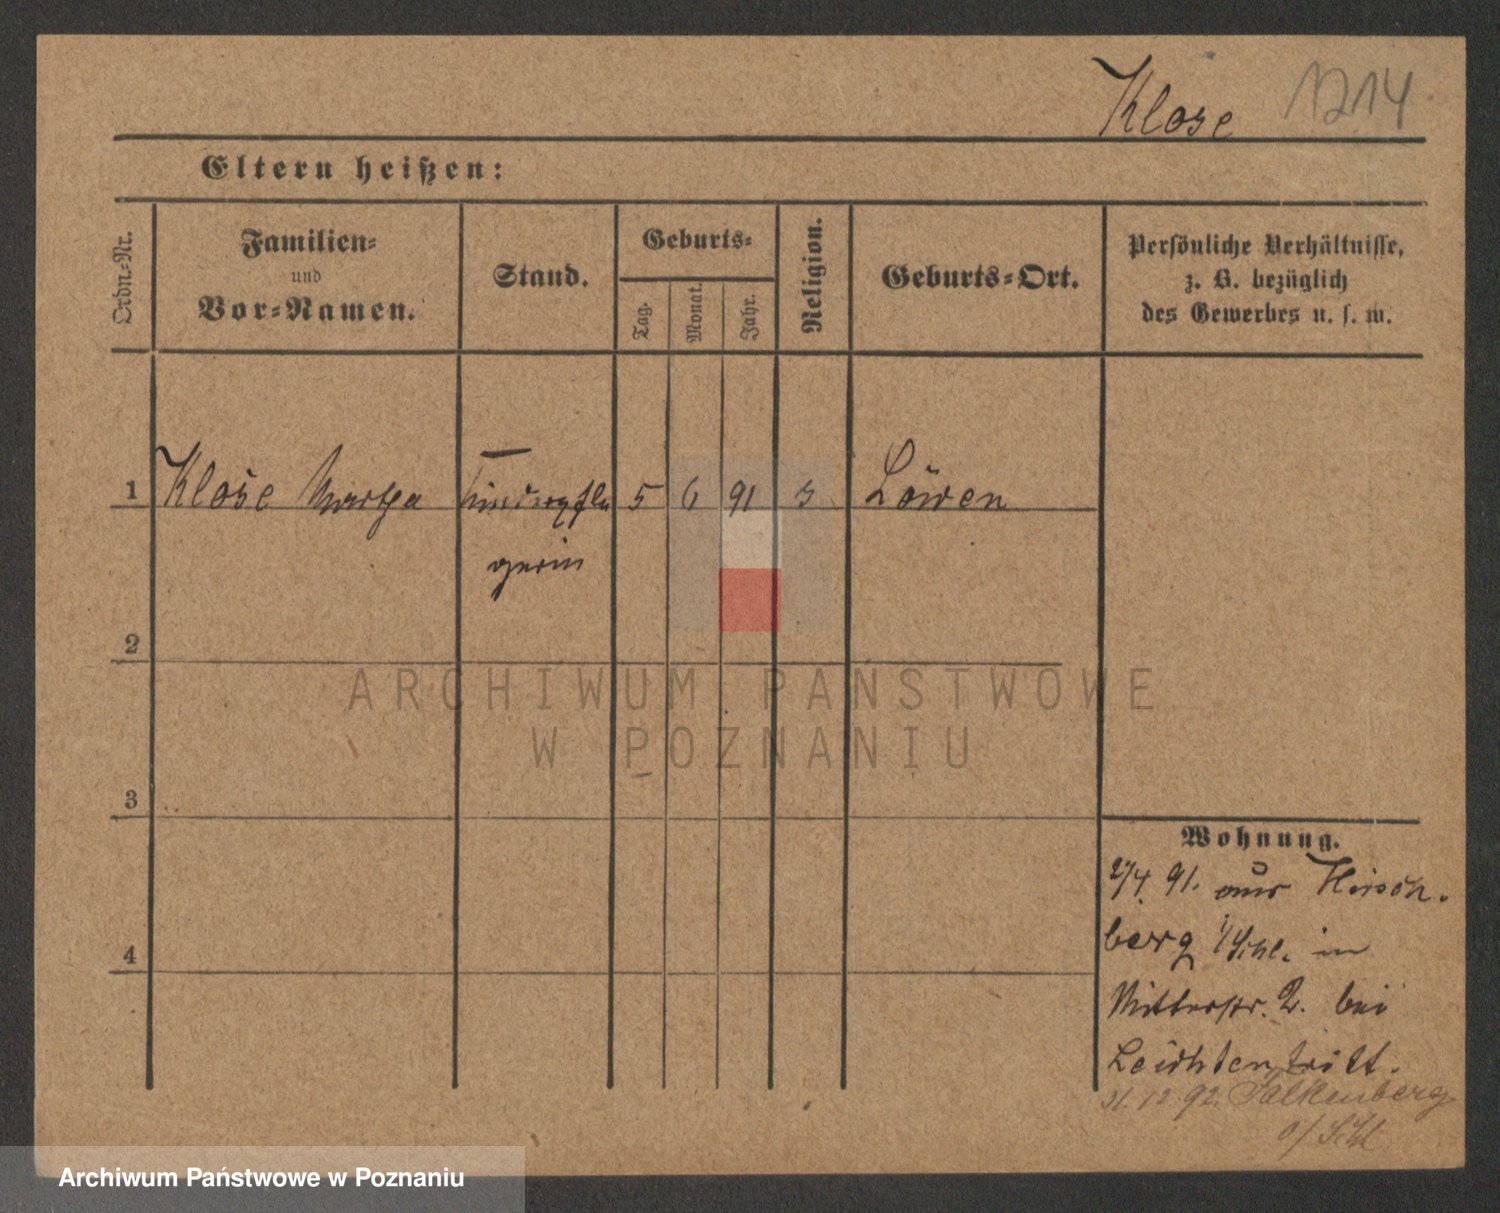 Klose 1214
Eltern heißen:
Ordn.-Nr.
Familien-
und
Vor-Namen.
Stand.
Geburts-
Tag.
Monat.
Jahr.
Religion.
Geburts-Ort.
Persönliche Verhältnisse,
z. B. bezüglich
des Gewerbes u. s. w.
1 Klose Martha 5 6 91 Löwen
gerin
2
ARCHIWUM PAŃSTWOWE
W POZNANIU
3
Wohnung.
91. aus Hirsch-
berg i/Schl. in
2. bei
Leichtentritt.
31.12.92. Falkenberg
o/Schl
4
Archiwum Państwowe w Poznaniu